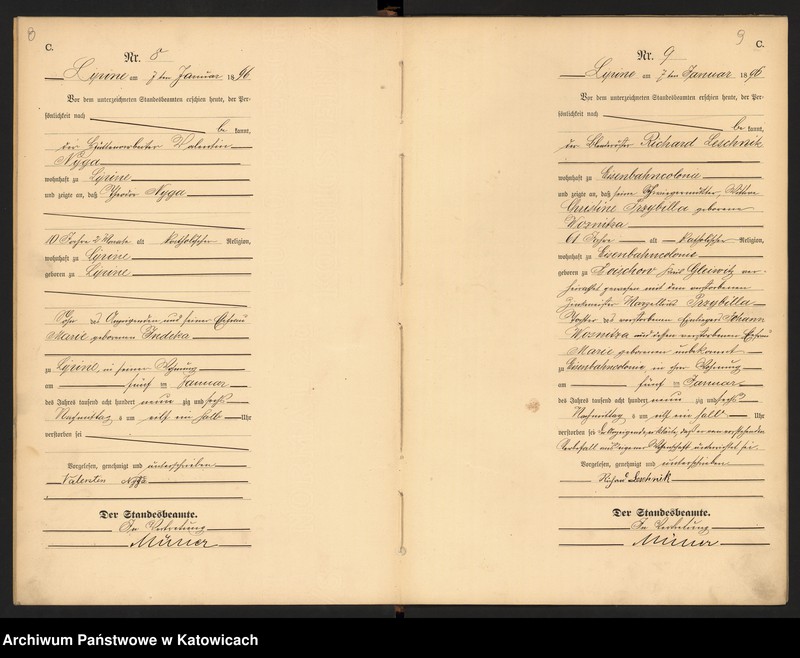 8
C.
Nr. 8
Lyrine am 7ten Januar 1896
Vor dem unterzeichneten Standesbeamten erschien heute, der Per-
sönlichkeit nach
be kannt,
der Hüttenarbeiter Valentin
Nyga
wohnhaft zu Lyrine
und zeigte an, daß Theodor Nyga
10 Jahre 2 Monate alt katholischer Religion,
wohnhaft zu Lyrine
geboren zu Lyrine
Sohn des Anzeigenden und seiner Ehefrau
Marie geborenen Indeka
zu Lyrine, in seiner Wohnung
am fünf ten Januar
des Jahres tausend acht hundert neun zig und sechs
Nachmittag s um elf ein halb Uhr
verstorben sei
Vorgelesen, genehmigt und unterschrieben
Valentin Nyga
Der Standesbeamte.
In Vertretung
9
C.
Nr. 9
Lyrine am 7ten Januar 1896
Vor dem unterzeichneten Standesbeamten erschien heute, der Per-
sönlichkeit nach
be kannt,
der Richard Leschnik
wohnhaft zu Eisenbahncolonie
und zeigte an, daß seine Schwiegermutter, Wittwe
Christine Przybilla geborene
Woznitza
61 Jahre alt katholischer Religion,
wohnhaft zu Eisenbahncolonie
geboren zu Zoischow Kreis Gleiwitz ver-
heirathet gewesen mit dem verstorbenen
Zinkmeister Marzellus Przybilla
Tochter des verstorbenen Einliegers Johann
Woznitza und dessen verstorbenen Ehefrau
Marie geborenen unbekannt
zu Eisenbahncolonie, in ihrer Wohnung
am fünf ten Januar
des Jahres tausend acht hundert neun zig und sechs
Nachmittag s um elf ein halb Uhr
verstorben sei. Der Anzeigende erklärte, daß er von vorstehendem
Sterbefall aus eigener Wissenschaft unterrichtet sei.
Vorgelesen, genehmigt und unterschrieben
Richard Leschnik
Der Standesbeamte.
In Vertretung
Archiwum Państwowe w Katowicach